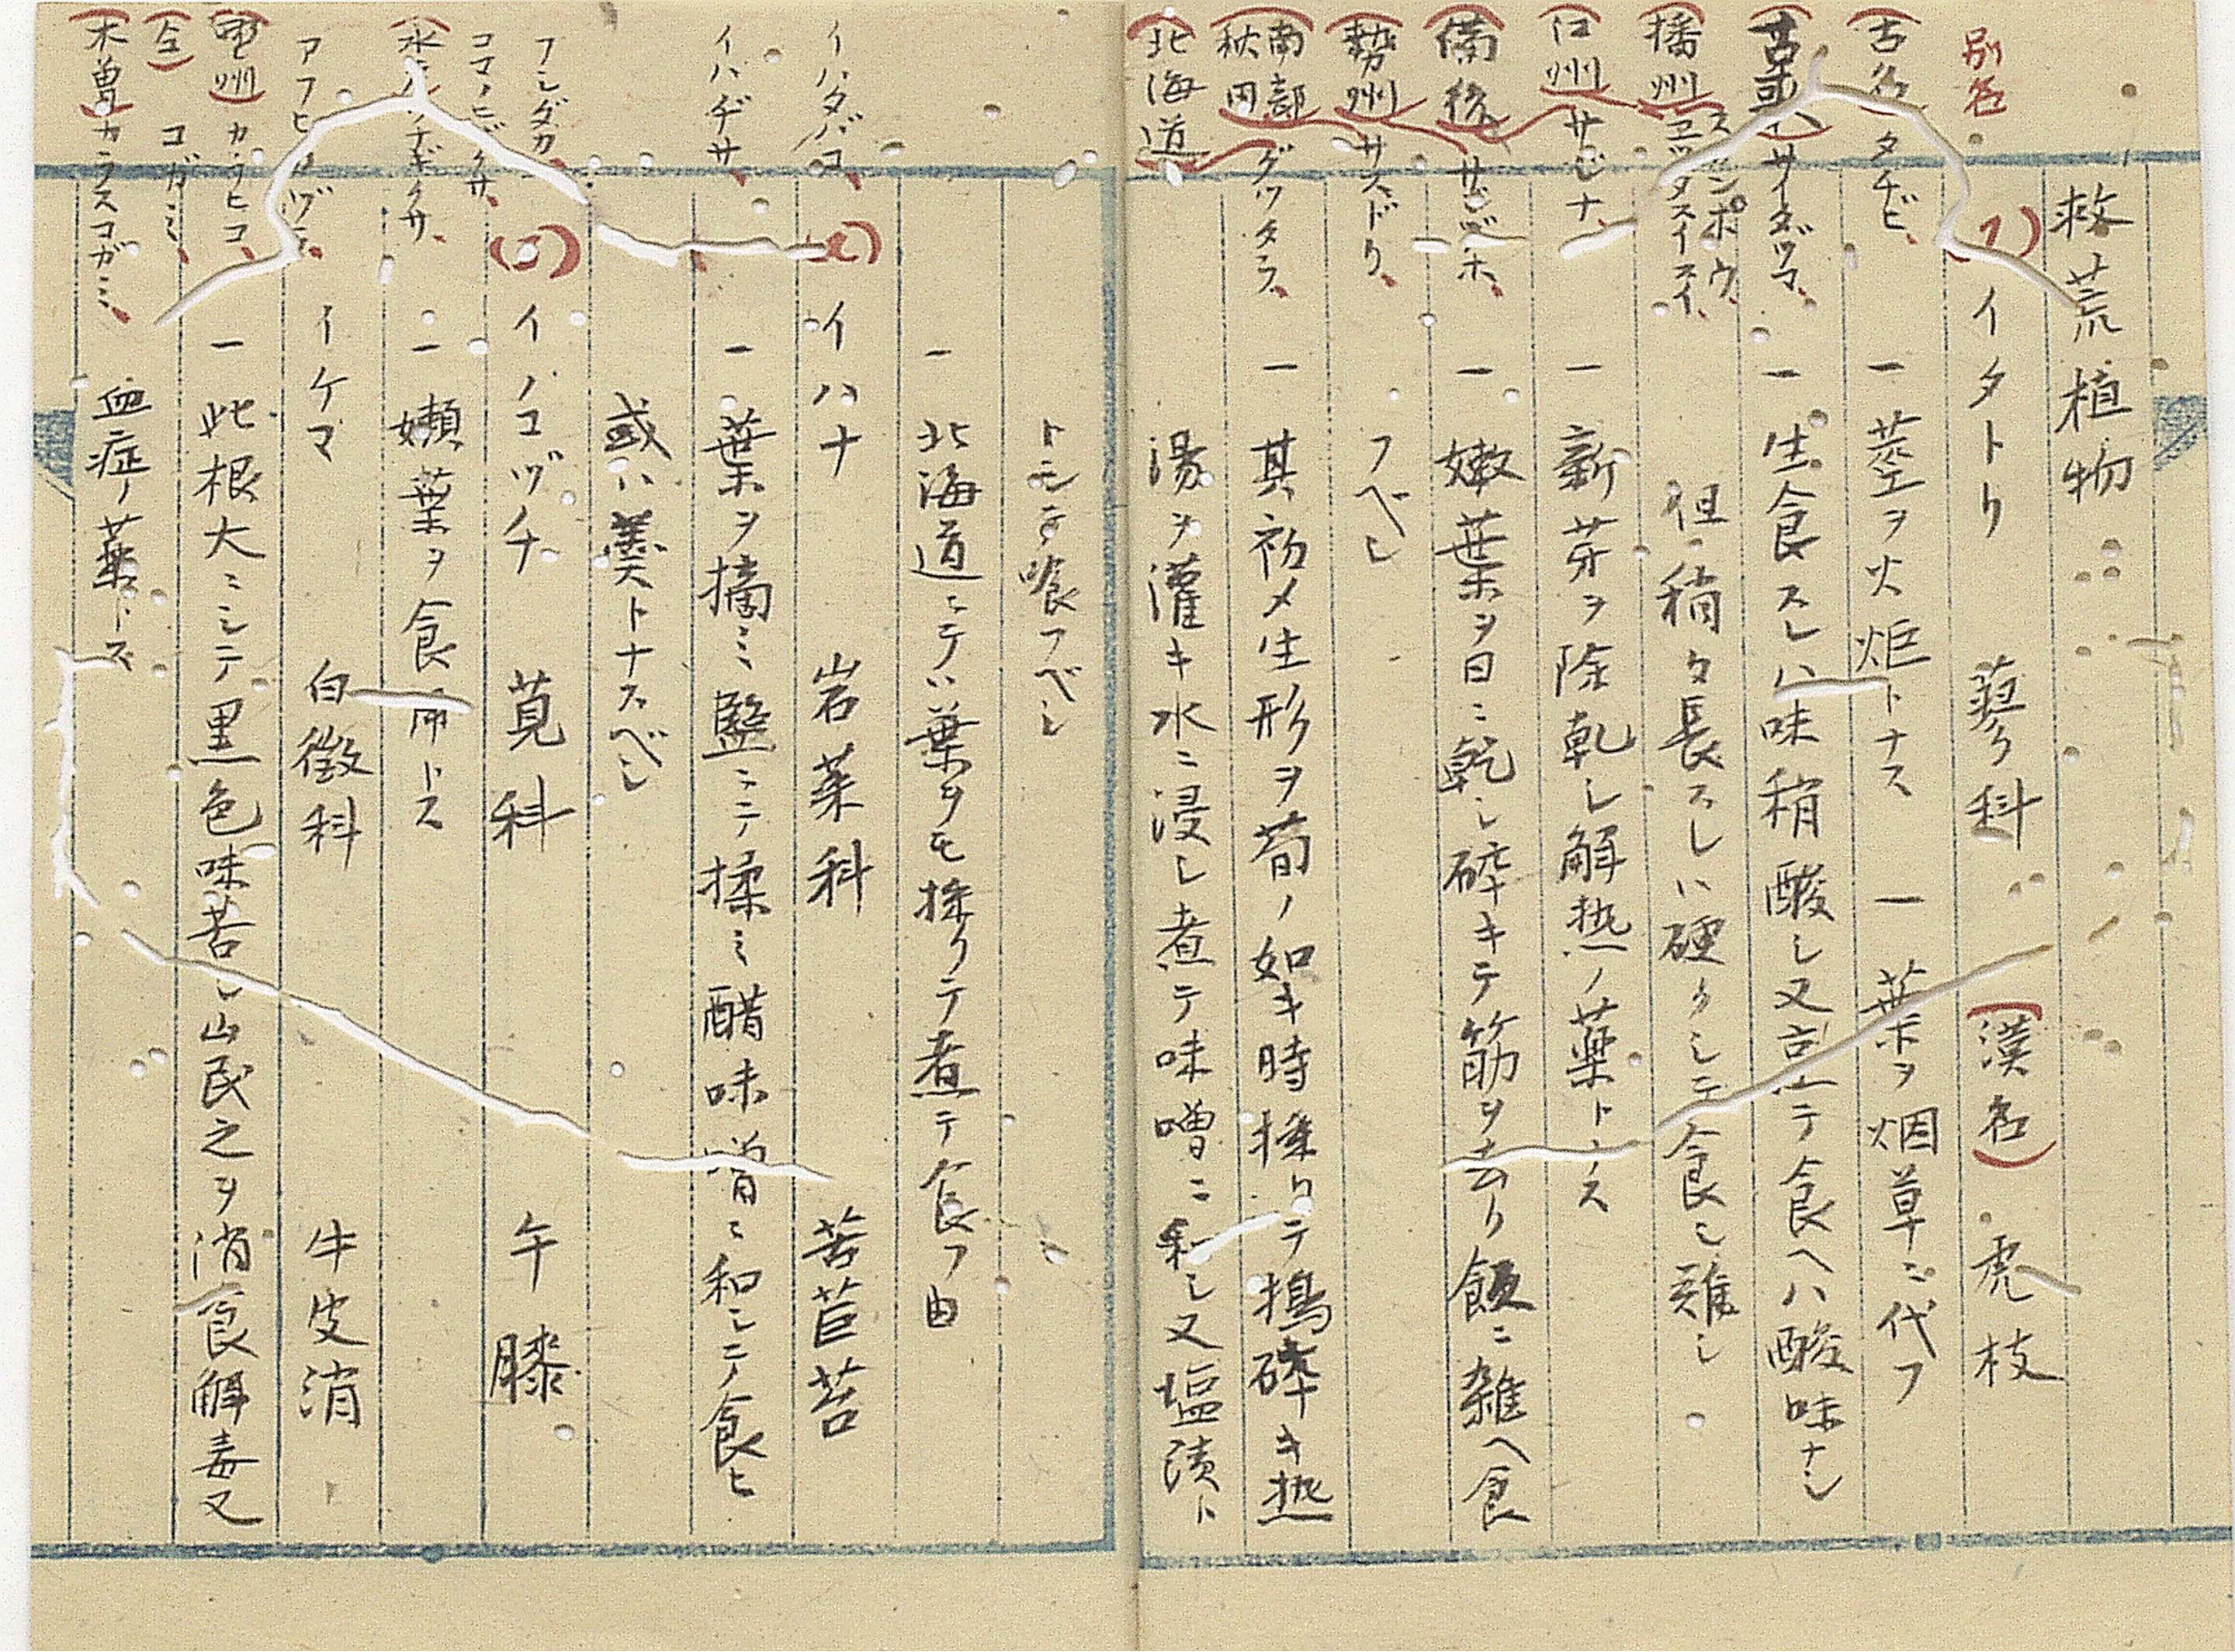 救荒植物
別名
(1)イタトリ 蓼科 (漢名) 虎枝
(古名)タチビ、
一 茎ヲ火炬トナス 一 葉ヲ烟草ニ代フ
サイタヅマ、
一 生食スレハ味稍酸し又煮テ食ヘハ酸味ナシ
(播州)スカンポウ、
ヱッタスイスイ、
但稍々長スレハ硬クシテ食シ難シ
(江州)サじナ、
一 新芽ヲ除乾し解熱ノ薬トナス
(備後)サじッホ、
一 嫩葉ヲ日ニ乾シ砕キテ筋ヲ去り飯ニ雑ヘ食
(勢州)サスドリ、
フベし
(南部
秋田)ダツタラ、
一 其初メ生形ヲ筍ノ如キ時採りテ搗砕キ熱
(北海道)
湯ヲ灌キ水ニ浸し煮テ味噌ニ和シ又塩漬ト
トモシテ喰フベし
一 北海道ニテハ葉ヲモ採りテ煮テ食フ由
イハタバコ、
イハナ 岩菜科 苦苣苔
イハヂサ、
一 葉ヲ摘ミ塩ニテ揉ミ醋味噌ニ和シテ食ヒ
或ハ羹トナスベし
フシダカ、
(3)イノコヅチ 莧科 午膝
コマノヒザクサ、
一 嫩葉ヲ食用トス
イケマ 白微科 牛皮消
(甲州)カラヒコ、
一 此根大ニシテ黒色味苦し山民之ヲ消食解毒又
(仝)コガミ、
(木曽)カラスコガミ、
血症ノ薬トス